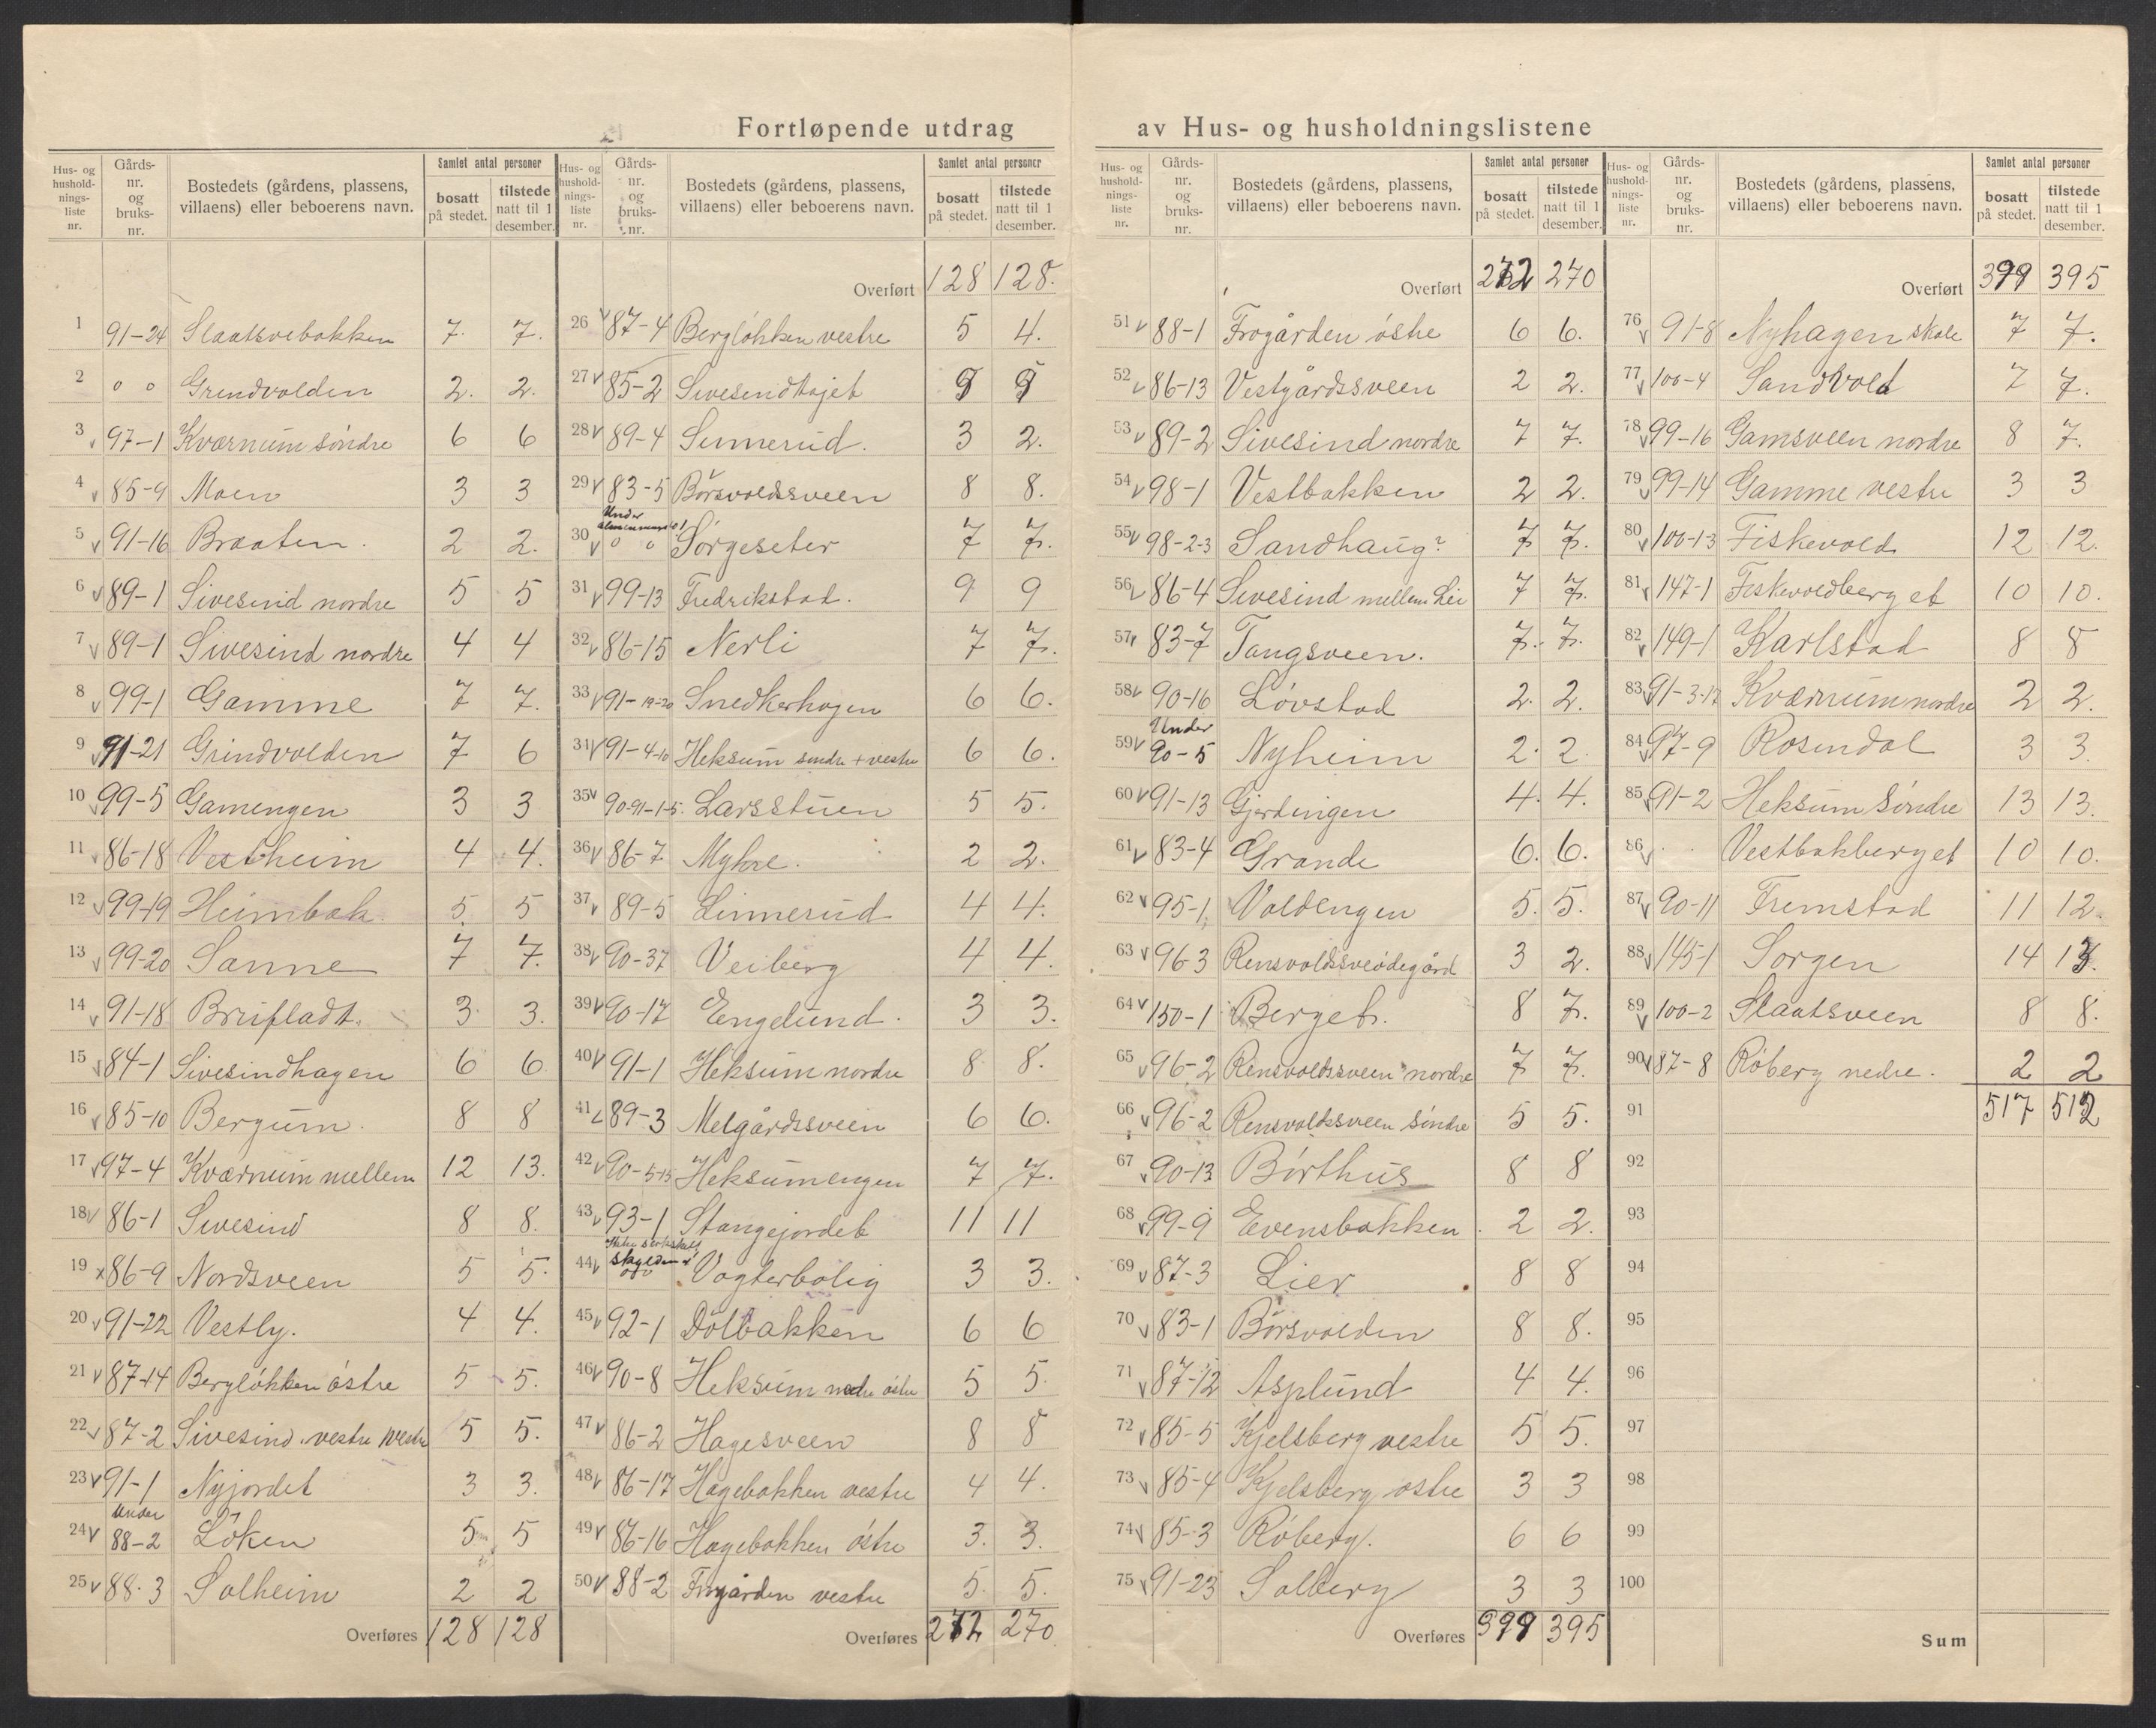 Fortløpende utdrag av Hus- og husholdningslistene
Hus- og husholdningsliste nr. | Gårdsnr. og bruksnr. | Bostedets (gårdens, plassens, villaens) eller beboerens navn. | Samlet antal personer bosatt på stedet. | tilstede natt til 1 desember.
1 91-24 Slaatsvebakken 7. 7.
2 o o Grendvolden 2. 2.
3 97-1 Kværnum söndre 6 6
4 85-9 Moen 3 3
5 91-16 Braaten. 2 2.
6 89-1 Sivesind nordre 5 5
7 89-1 Sivesind nordre 4 4
8 99-1 Gamme 7 7.
9 91-21 Grindvolden 7 6
10 99-5 Gamengen 3 3
11 86-18 Vestheim 4 4.
12 99-19 Heimbak. 5. 5
13 99-20 Sanne 7 7.
14 91-18 Brufladt. 3 3.
15 84-1 Sivesindhagen 6 6
16 85-10 Bergum. 8 8
17 97-4 Kværnum mellem 12 13.
18 86-1 Sivesind 8 8.
19 86-9 Nordsveen 5 5.
20 91-22 Vestly. 4 4.
21 87-14 Bergløkken östre 5 5.
22 87-2 Sivesind vestre 5 5.
23 91-1 Nyjordet 3 3.
24 under 88-2 Löken 5 5
25 88-3 Solheim 2 2
Overføres 128 128
Overført 128 128.
26 87-4 Bergløkken vestre 5 4.
27 85-2 Sivesindhajet 9 9
28 89-4 Linnerud. 3 2.
29 83-5 Børsvoldsveen 8 8.
30 Under o o Sørgeseter 7 7.
31 99-13 Fredrikstad. 9 9
32 86-15 Nerli 7 7.
33 91-19-20 Snedkerhagen 6 6.
34 91-4-10 Heksum søndre + vestre 6 6.
35 90-91-1-5. Larsstuen 5 5.
36 86-7 Myhre. 2 2.
37 89-5 Linnerud 4 4.
38 90-37 Veiberg 4 4.
39 90-17 Engelund. 3 3.
40 91-1 Heksum nordre 8 8.
41 89-3 Melgårdssveen 6 6.
42 90-5-15 Heksumengen 7 7.
43 93-1 Stangejordet 11 11
44 skyldsat Vogterbolig 3 3.
45 92-1 Dölbakken 6 6
46 90-8 Heksum nedre östre 5 5.
47 86-2 Hagesveen 8 8
48 86-17 Hagebakken vestre 4 4.
49 86-16 Hagebakken östre 3. 3.
50 88-2 Frogården vestre 5. 5.
Overføres 272 270.
Overført 272 270
51 88-1 Frogården östre 6 6.
52 86-13 Vestgårdssveen 2 2.
53 89-2 Sivesind nordre 7 7.
54 98-1 Vestbakken 2 2.
55 98-2-3 Sandhaug? 7 7.
56 86-4 Sivesind mellem Lie 7 7.
57 83-7 Tangsveen. 7. 7.
58 90-16 Løvstad 2. 2.
59 Under 90-5 Nyheim 2. 2.
60 91-13 Gjerdingen 4. 4.
61 83-4 Grande 6. 6.
62 95-1 Voldengen 5. 5.
63 96-3 Rensvoldsveødegård 3 2.
64 150-1 Berget. 8 7.
65 96-2 Rensvoldssveen nordre 7 7.
66 96-2 Rensvoldssveen söndre 5 5.
67 90-13 Börthus 8 8
68 99-9 Evensbakken. 2 2.
69 87-3 Lier 8 8
70 83-1 Børsvolden 8 8.
71 87-12 Asplund 4 4.
72 85-5 Kjelsberg vestre 5 5.
73 85-4 Kjelsberg østre 3 3
74 85-3 Röberg. 6 6
75 91-23 Solberg 3 3
Overføres 399 395
Overført 399 395
76 91-8 Nyhagen skole 7 7.
77 100-4 Sandvold 7 7.
78 99-16 Gamsveen nordre 8 7.
79 99-14 Gamme vestre 3 3
80 100-13 Fiskevold 12 12.
81 147-1 Feskevoldberget 10 10.
82 149-1 Karlstad 8 8
83 91-3-17 Kværnum nordre 2 2.
84 97-9 Rosendal 3 3.
85 91-2 Heksum Söndre 13 13.
86 Vestbakberget 10 10.
87 90-11 Fremstad 11 12.
88 145-1 Sorgen 14 13.
89 100-2 Slaatsveen 8 8.
90 87-8 Röberg nedre. 2 2
91 517 512
92
93
94
95
96
97
98
99
100
Sum